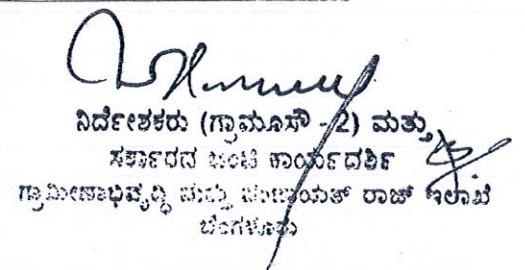 ನಿರ್ದೇಶಕರು (ಗ್ರಾಮೂಸೌ - 2) ಮತ್ತು
ಸರ್ಕಾರದ ಜಂಟಿ ಕಾರ್ಯದರ್ಶಿ
ಗ್ರಾಮೀಣಾಭಿವೃದ್ಧಿ ಮತ್ತು ಪಂಚಾಯತ್ ರಾಜ್ ಇಲಾಖೆ
ಬೆಂಗಳೂರು